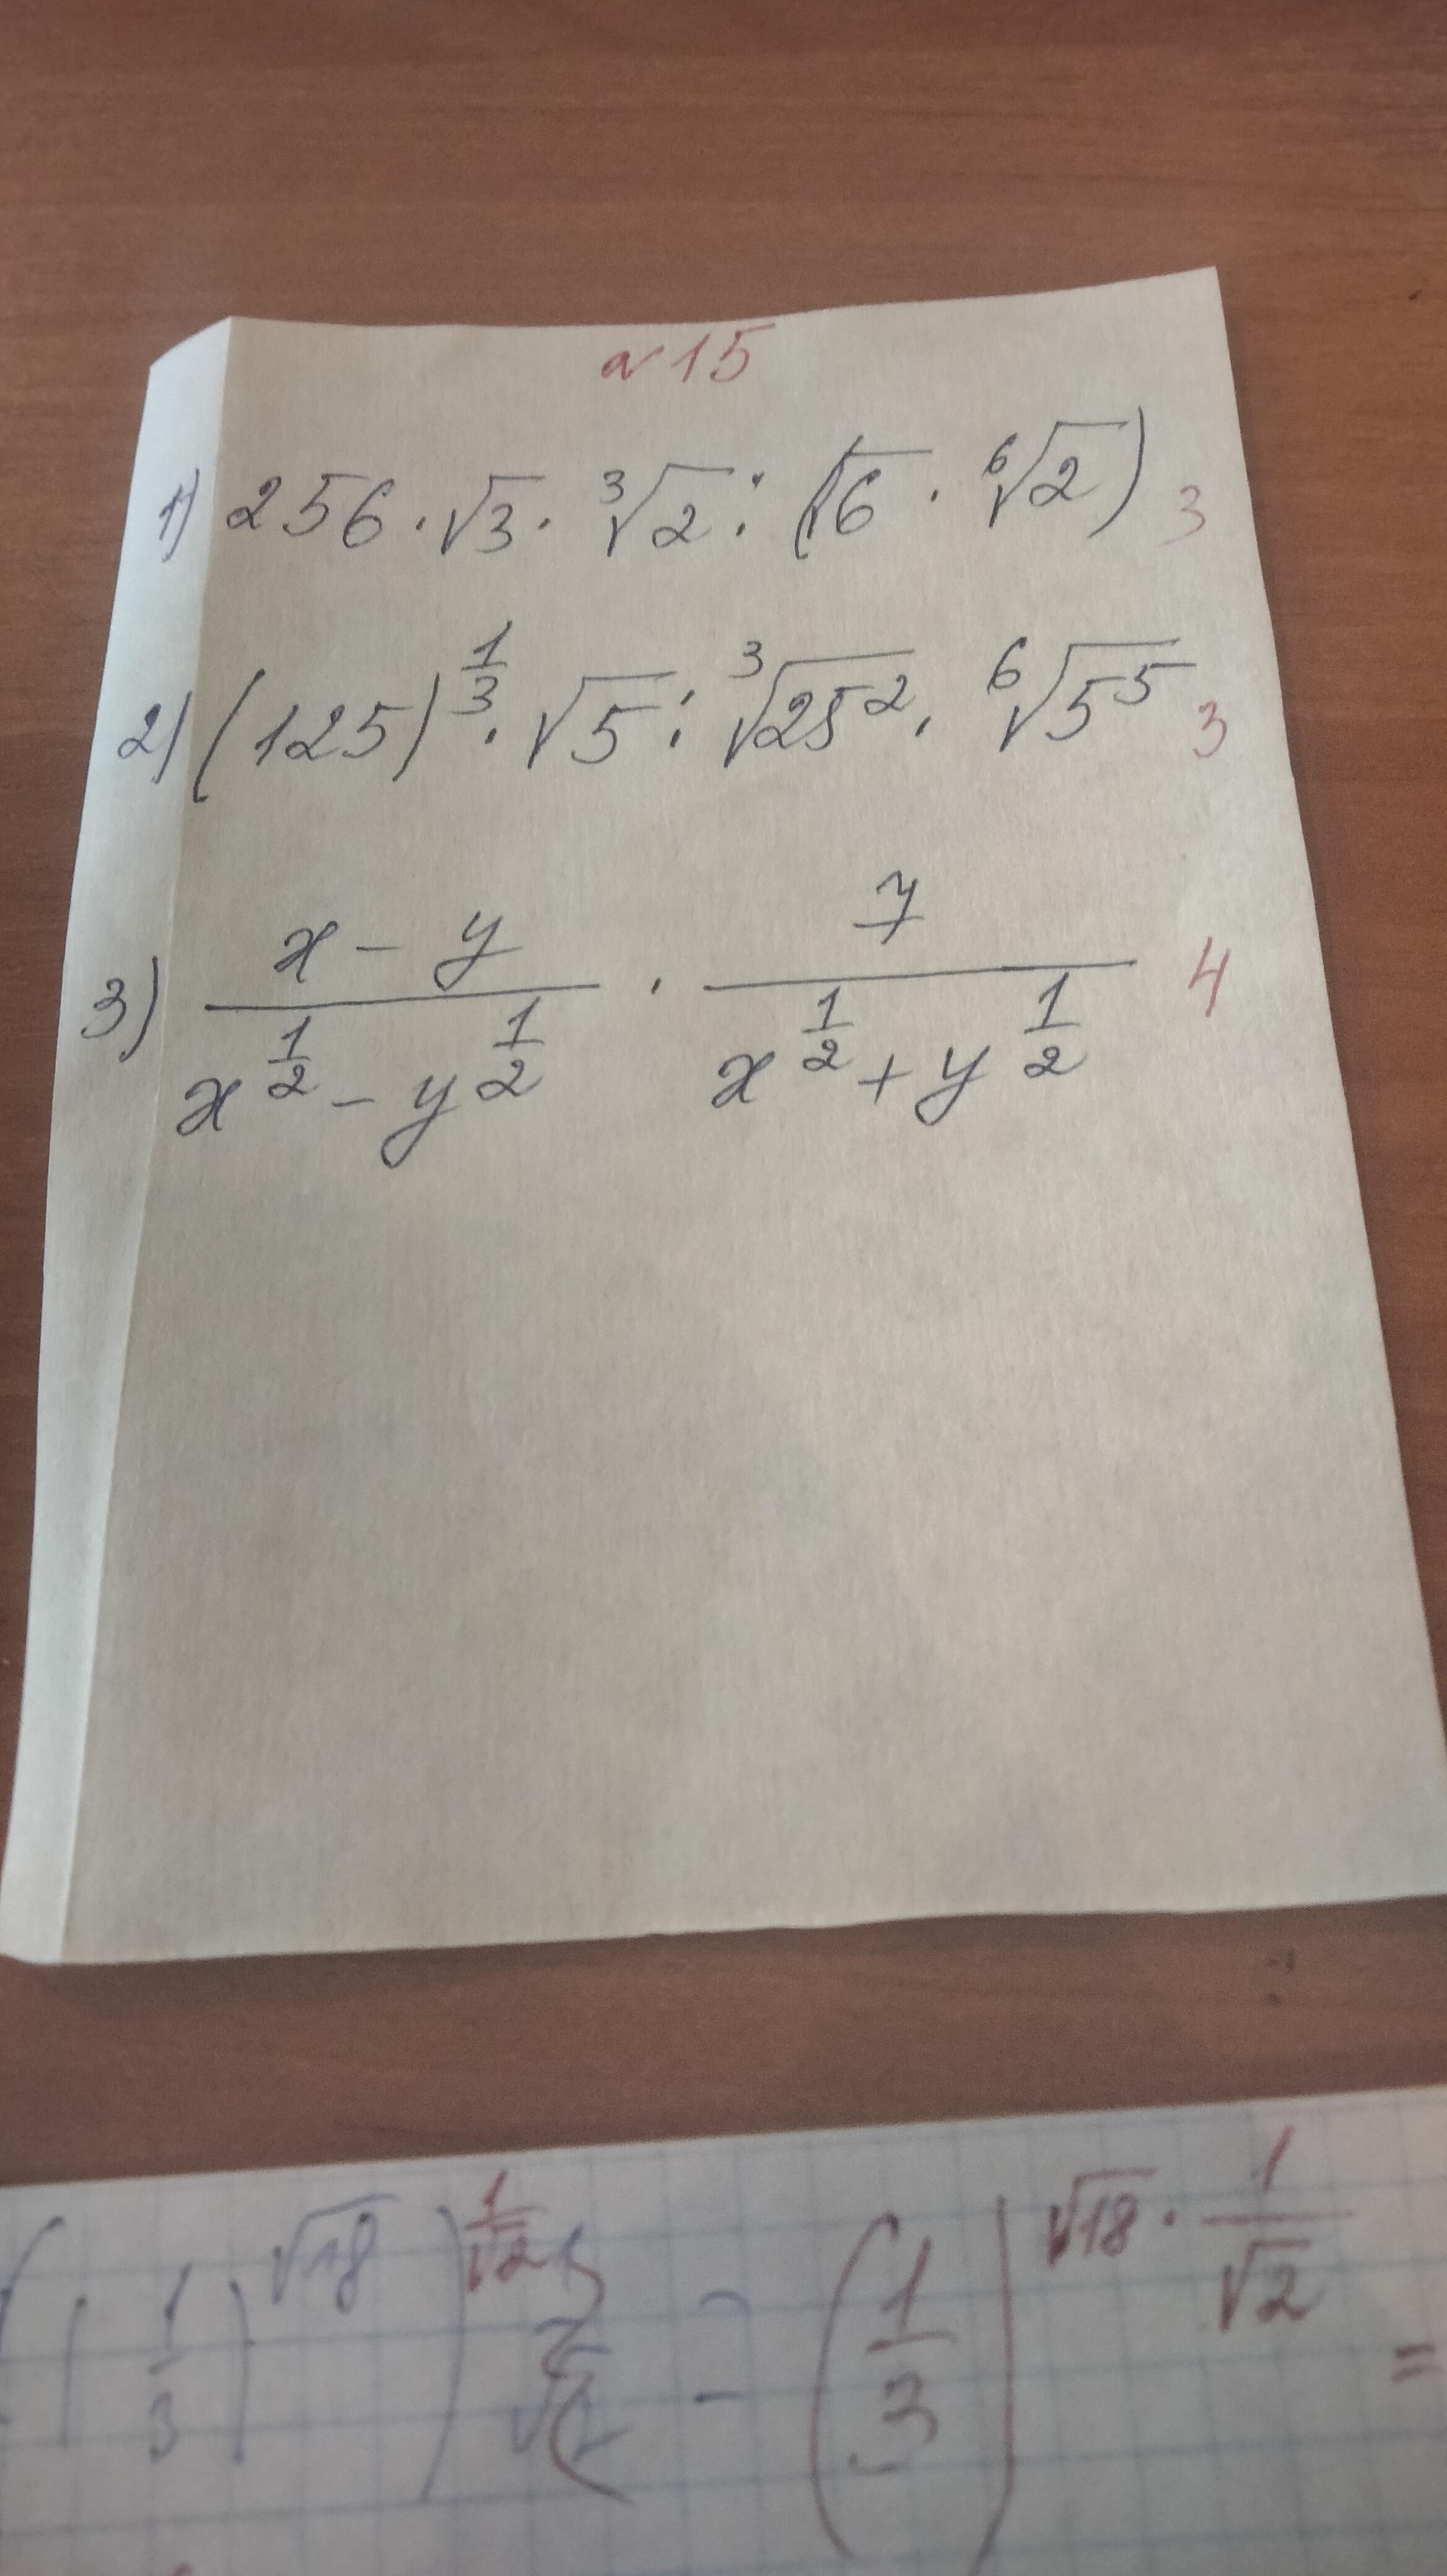 №15
1) 256 · √3 · ∛2 : (√6 · ⁶√2) 3
2) (125)^(1/3) · √5 : ∛(25²) · ⁶√(5⁵) 3
3) (x - y)/(x^(1/2) - y^(1/2)) · 7/(x^(1/2) + y^(1/2)) 4
((1/3)^√18)^(1/√2) = (1/3)^(√18 · 1/√2) =